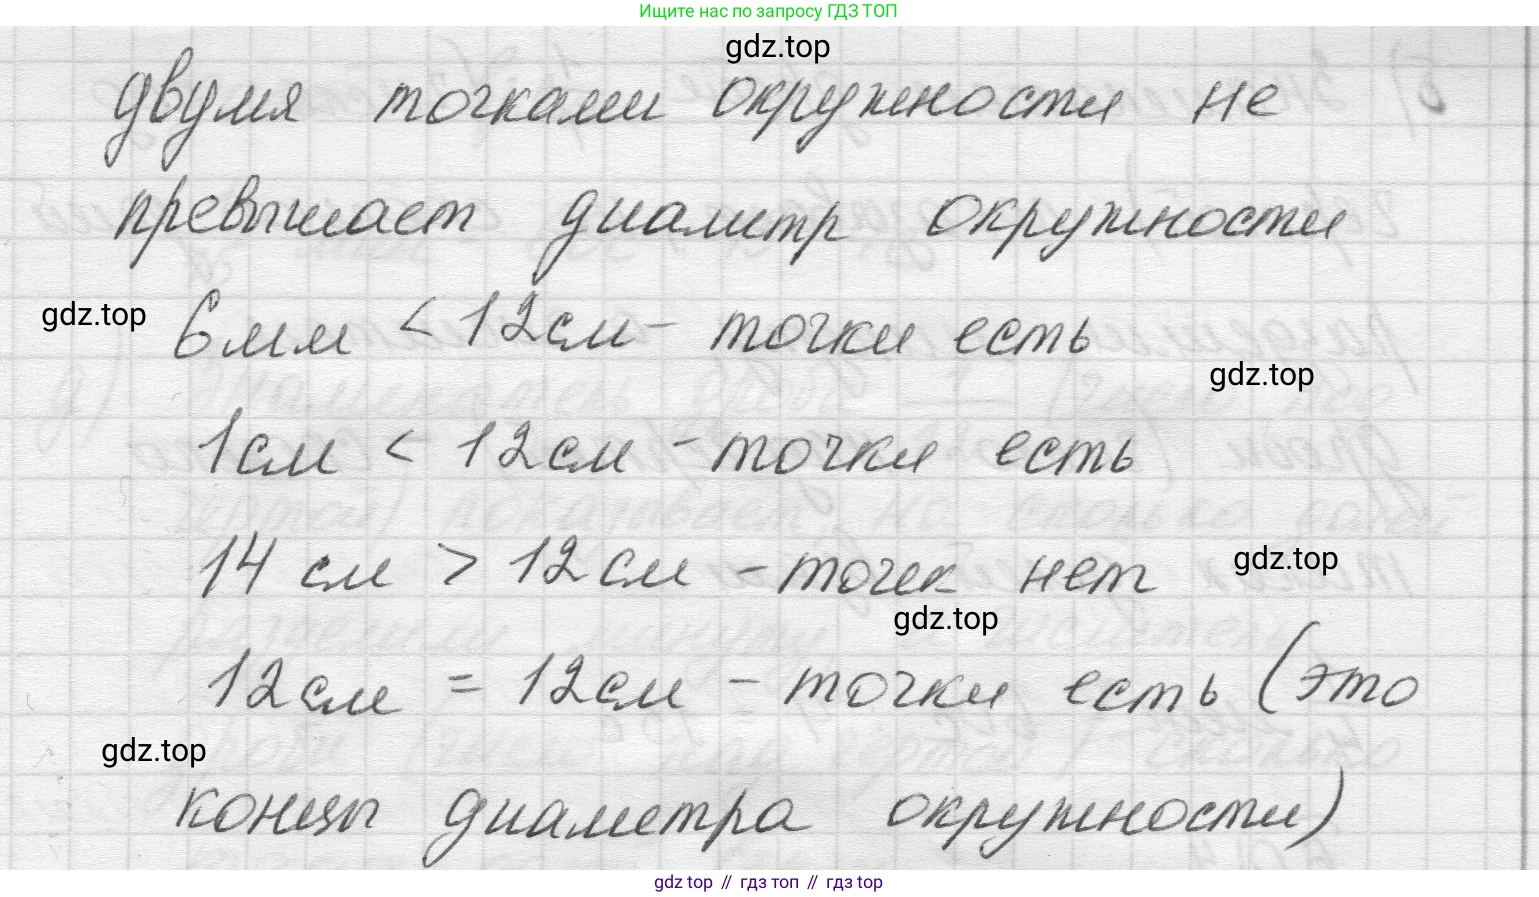 Ищите нас по запросу ГДЗ ТОП
gdz.top
двумя точками окружности не
превышает диаметр окружности
gdz.top
6мм < 12см - точки есть
gdz.top
1см < 12см - точки есть
14 см > 12 см - точек нет
gdz.top
gdz.top
12см = 12см - точки есть (это
gdz.top
концы диаметра окружности)
gdz top // гдз топ // гдз.top